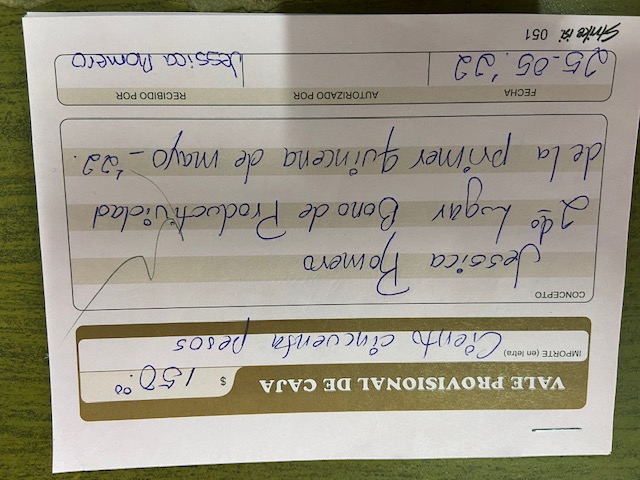 VALE PROVISIONAL DE CAJA
$ 150.00
IMPORTE (en letra)
Ciento cincuenta pesos
CONCEPTO
Jessica Romero
2do Lugar Bono de Productividad
de la primer quincena de mayo-'22.
FECHA AUTORIZADO POR RECIBIDO POR
25-05-'22 Jessica Romero
Strike 051